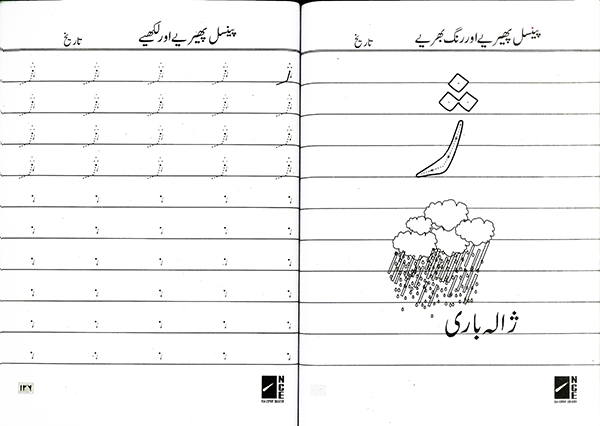 پینسل پھیریے اور رنگ بھریے تاریخ
ژ
ژالہ باری
NCE
پینسل پھیریے اور لکھیے تاریخ
ژ ژ ژ ژ ژ
ژ ژ ژ ژ ژ
ژ ژ ژ ژ ژ
ژ ژ ژ ژ ژ
NCE